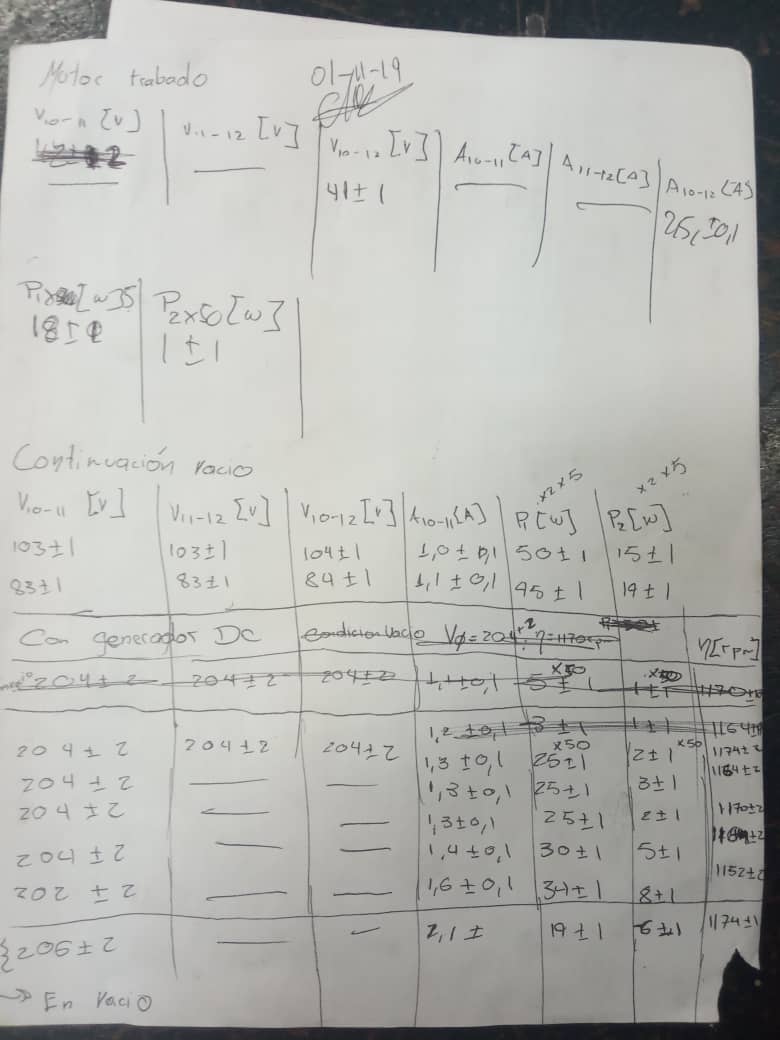 Motor trabado 01-11-19
V10-11 [V] V11-12 [V] V10-12 [V] A10-11 [A] A11-12 [A] A10-12 [A]
— — 41 ± 1 — — 25, ±0,1
P1x [w] 5 P2x50 [w]
18 ± 1 ± 1
Continuación vacio
x2x5 x2x5
V10-11 [V] V11-12 [V] V10-12 [V] A10-11 [A] P1 [w] P2 [w]
103±1 103±1 104±1 1,0 ± 0,1 50 ± 1 15 ± 1
83±1 83±1 84±1 1,1 ± 0,1 45 ± 1 19 ± 1
Con generador DC condicion vacio Vφ=204±2; η=1170rpm η[rpm]
204± 2 204 ± 2 204±2 1,1±0,1 5 ± 1 x50 1±1 x50 1170±
1,2 ±0,1 3 ±1 1±1 1164±
204 ± 2 204±2 204±2 1,3 ±0,1 25±1 x50 2±1 x50 1174±2
204 ± 2 — 1,3 ±0,1 25±1 3±1 1164±2
204 ± 2 — — 1,3±0,1 25±1 2±1 1170±2
204 ±2 — — 1,4 ±0,1 30±1 5±1
202 ± 2 — — 1,6 ±0,1 34±1 8±1 1152±2
{206±2 — — 2,1 ± 19 ±1 6±1 1174±1
→ En vacio